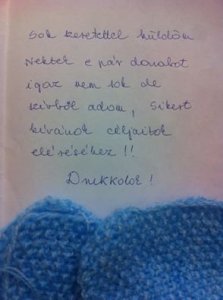 Sok szeretettel küldöm
Nektek e pár darabot
igaz nem sok de
szívből adom, Sikert
kívánok céljaitok
eléréséhez !!